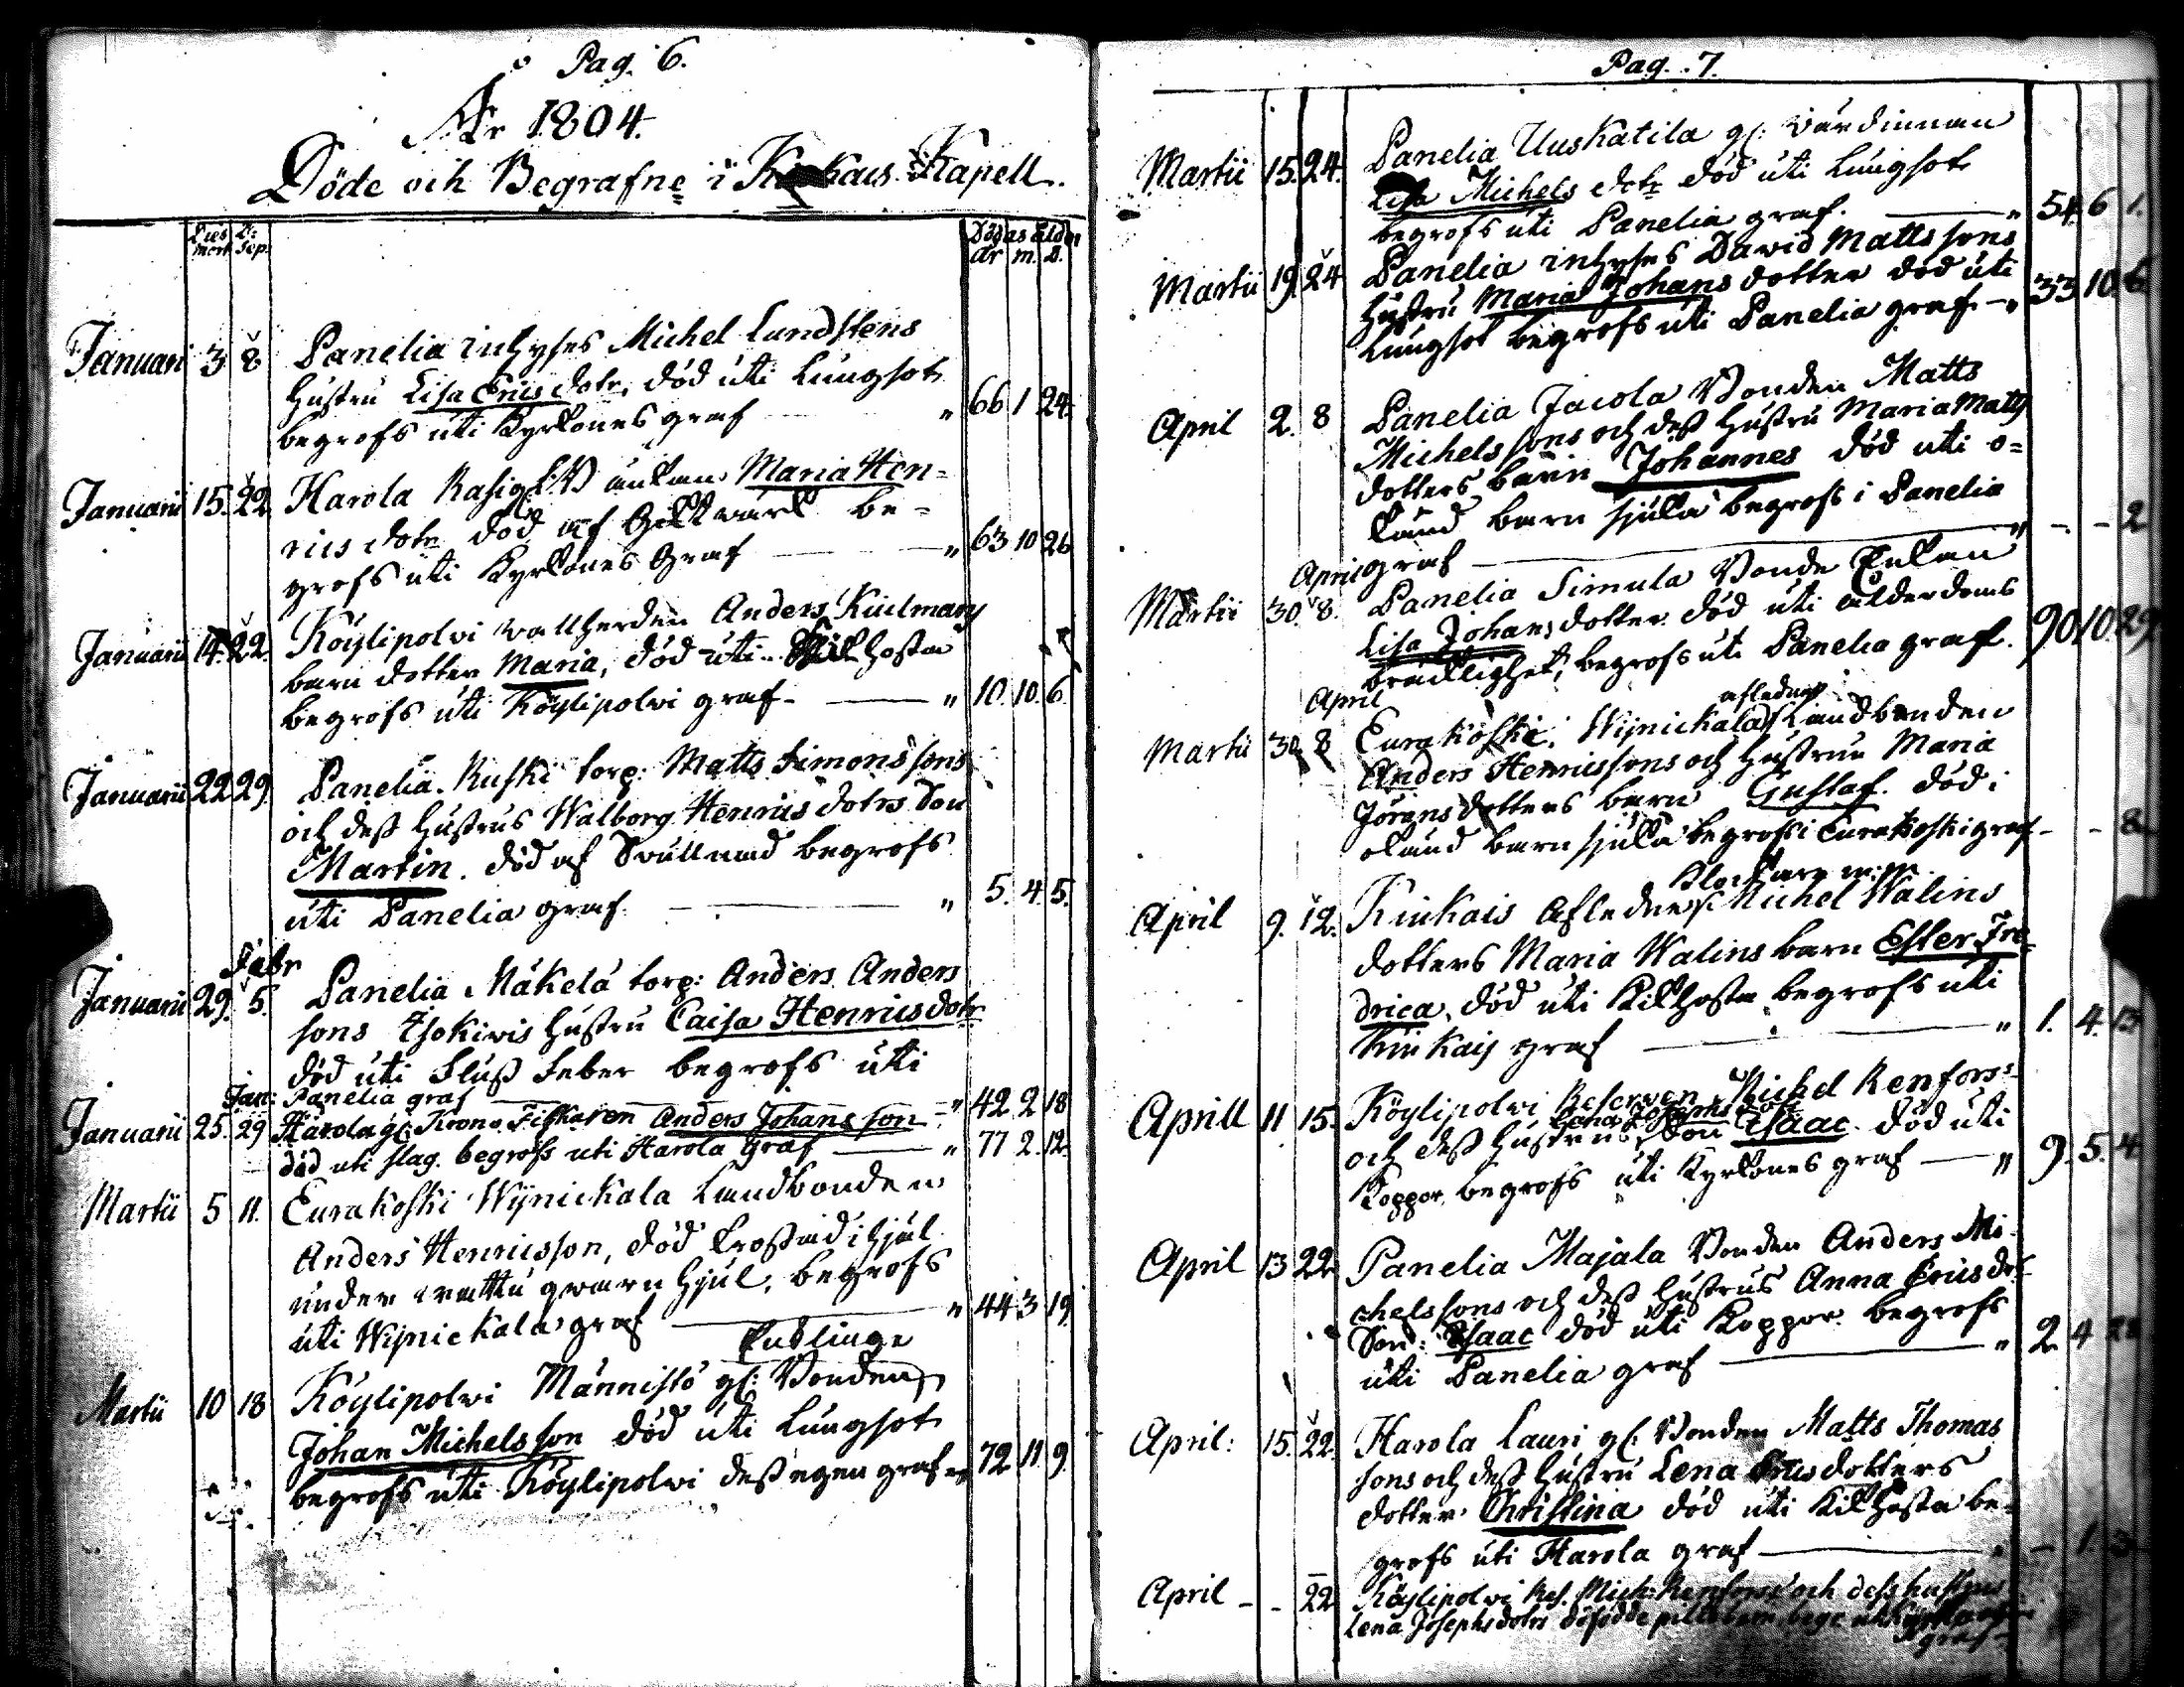 Pag. 6.
År 1804.
Döde och Begrafne i Kiukais Kapell.
Dies mort. D: Sep. Dödas ålder
år m. D.
Januarii 3 8 Panelia inhyses Michel Lundstens
hustru Lisa Erics dotr. död uti Lungsot
begrofs uti Kyrkones graf " 66 1 24.
Januarii 15. 22 Harola Rasi änkan Maria Hen=
rics dotr död af Gicktvärk be=
grofs uti Kyrkones Graf " 63 10 26
Januarii 14. 22. Köylipolvi vallherden Anders Kiulmans
barn dotter Maria, död uti Kikhosta
begrofs uti Köylipolvi graf. " 10. 10. 6.
Januarii 22 29. Panelia Ruski torp: Matts Simons sons
och dess hustrus Walborg Henrics dotrs Son
Martin. död af Svullnad begrofs
uti Panelia graf. " 5. 4. 5.
Febr
Januarii 29. 5. Panelia Mäkelä torp: Anders Anders
sons Isokivis hustru Caisa Henrics dotr
död uti Fluss Feber begrofs uti
Panelia graf " 42 2 18
Jan:
Januarii 25. 29 Harola gl: Krono Fiskaren Anders Johans son
död uti slag. begrofs uti Harola Graf " 77 2. 12.
Martii 5 11. Eurakoski Wijnickala Landbonden
Anders Henricsson, död krossad ihjäl
under vattu qvarn hjul, begrofs
uti Wijnickala graf " 44 3 19.
Enklinge
Martii 10 18 Köylipolvi Männistö gl: Bonden
Johan Michels son död uti Lungsot
begrofs uti Köylipolvi dess egen graf " 72 11 9.
Pag. 7.
Martii 15. 24. Panelia Uuskatila gl: värdinnan
Lisa Michels dotr död uti Lungsot
begrofs uti Panelia graf. " 54. 6 1.
Martii 19. 24 Panelia inhyses David Matts sons
hustru Maria Johans dotter död uti
Lungsot begrofs uti Panelia graf " 33 10 6
April 2. 8 Panelia Jacola Bonden Matts
Michels sons och dess hustru Maria Matts
dotters barn Johannes död uti o=
känd barn sjuka begrofs i Panelia
graf " - - 2
April
Martii 30. 8. Panelia Simula Bonde Enkan
Lisa Johans dotter död uti ålderdoms
bräcklighet, begrofs uti Panelia graf. 90 10 29.
April
Martii 30. 8 Eurakoski Wijnickala afledne Landbonden
Anders Henricssons och hustrun Maria
Jörans dotters barn Gustaf. död i
okänd barn sjuka begrofs i Eurakoski graf - - 8
April 9. 12. Kiukais Afledne Klockarn Michel Walins
dotters Maria Walins barn Ester Fre=
drica, död uti Kikhosta begrofs uti
Kiukais graf " 1. 4. 13
Aprill 11 15. Köylipolvi Reserven Michel Renfors
och dess hustrus Lena Josephs dotr Son Isaac. död uti
Koppor, begrofs uti Kyrkones graf " 9. 5. 4
April 13 22 Panelia Majala Bonden Anders Mi=
chels sons och dess hustrus Anna Erics dotr
Son: Isaac död uti Koppor begrofs
uti Panelia graf " 2 4 28
April: 15. 22. Harola Lauri gl: Bonden Matts Thomas
sons och dess hustru Lena Erics dotters
dotter Christina död uti Kikhosta be=
grofs uti Harola graf " - 1. 3
April - - 22 Köylipolvi Res. Mich: Renfors och dess hustrus
Lena Josephs dotrs dödfödde begr uti Kyrkones
graf